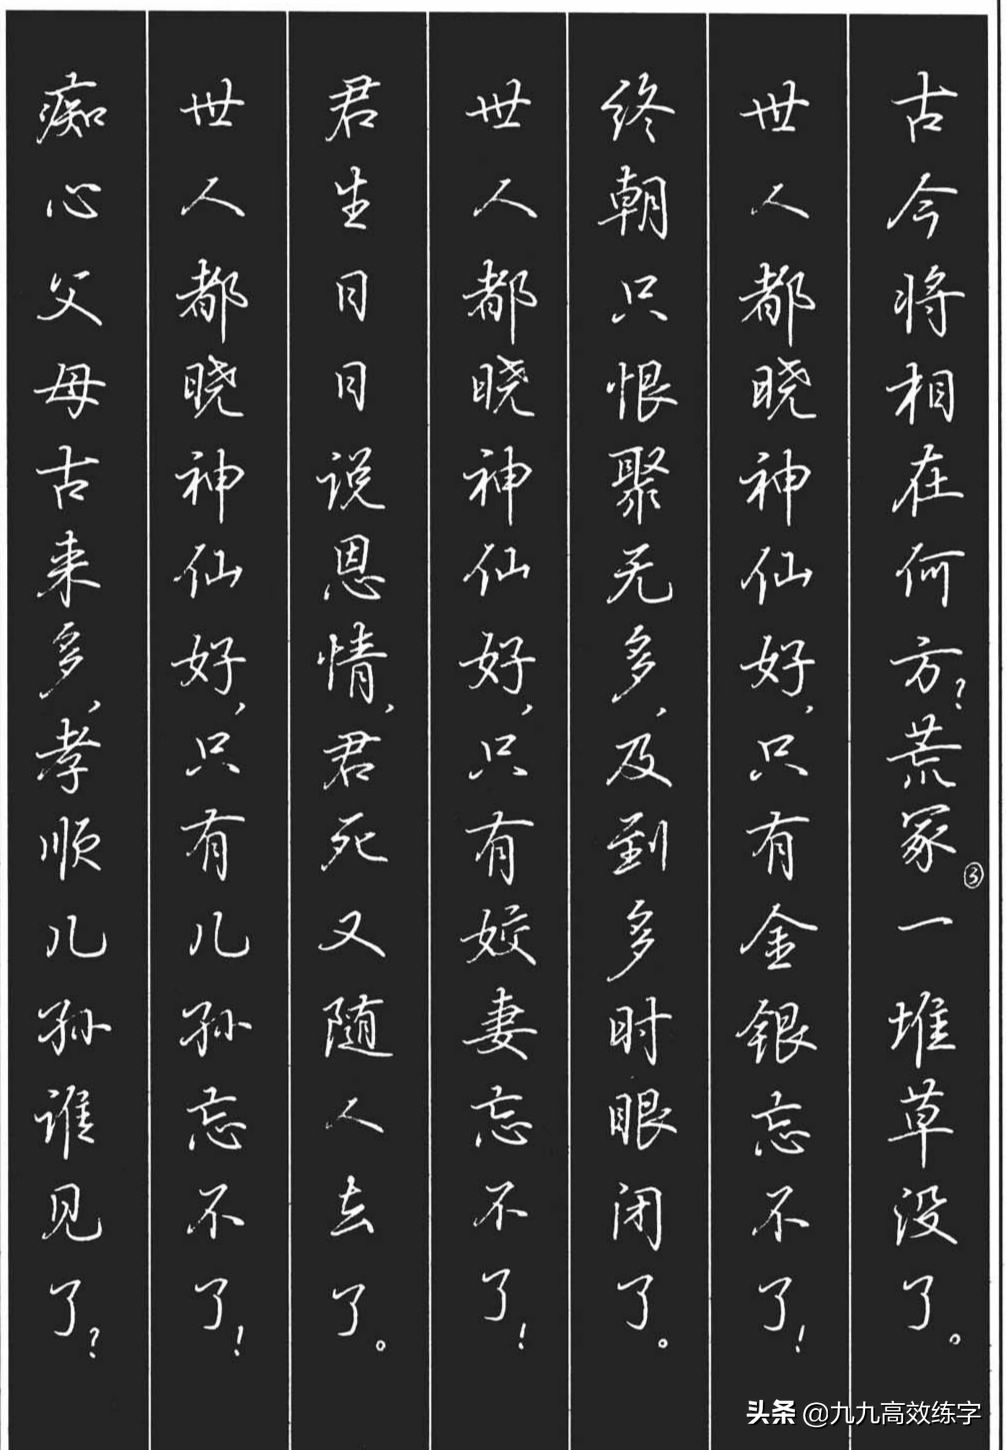 古今将相在何方？荒冢③一堆草没了。
世人都晓神仙好，只有金银忘不了！
终朝只恨聚无多，及到多时眼闭了。
世人都晓神仙好，只有姣妻忘不了！
君生日日说恩情，君死又随人去了。
世人都晓神仙好，只有儿孙忘不了！
痴心父母古来多，孝顺儿孙谁见了？
头条 @九九高效练字